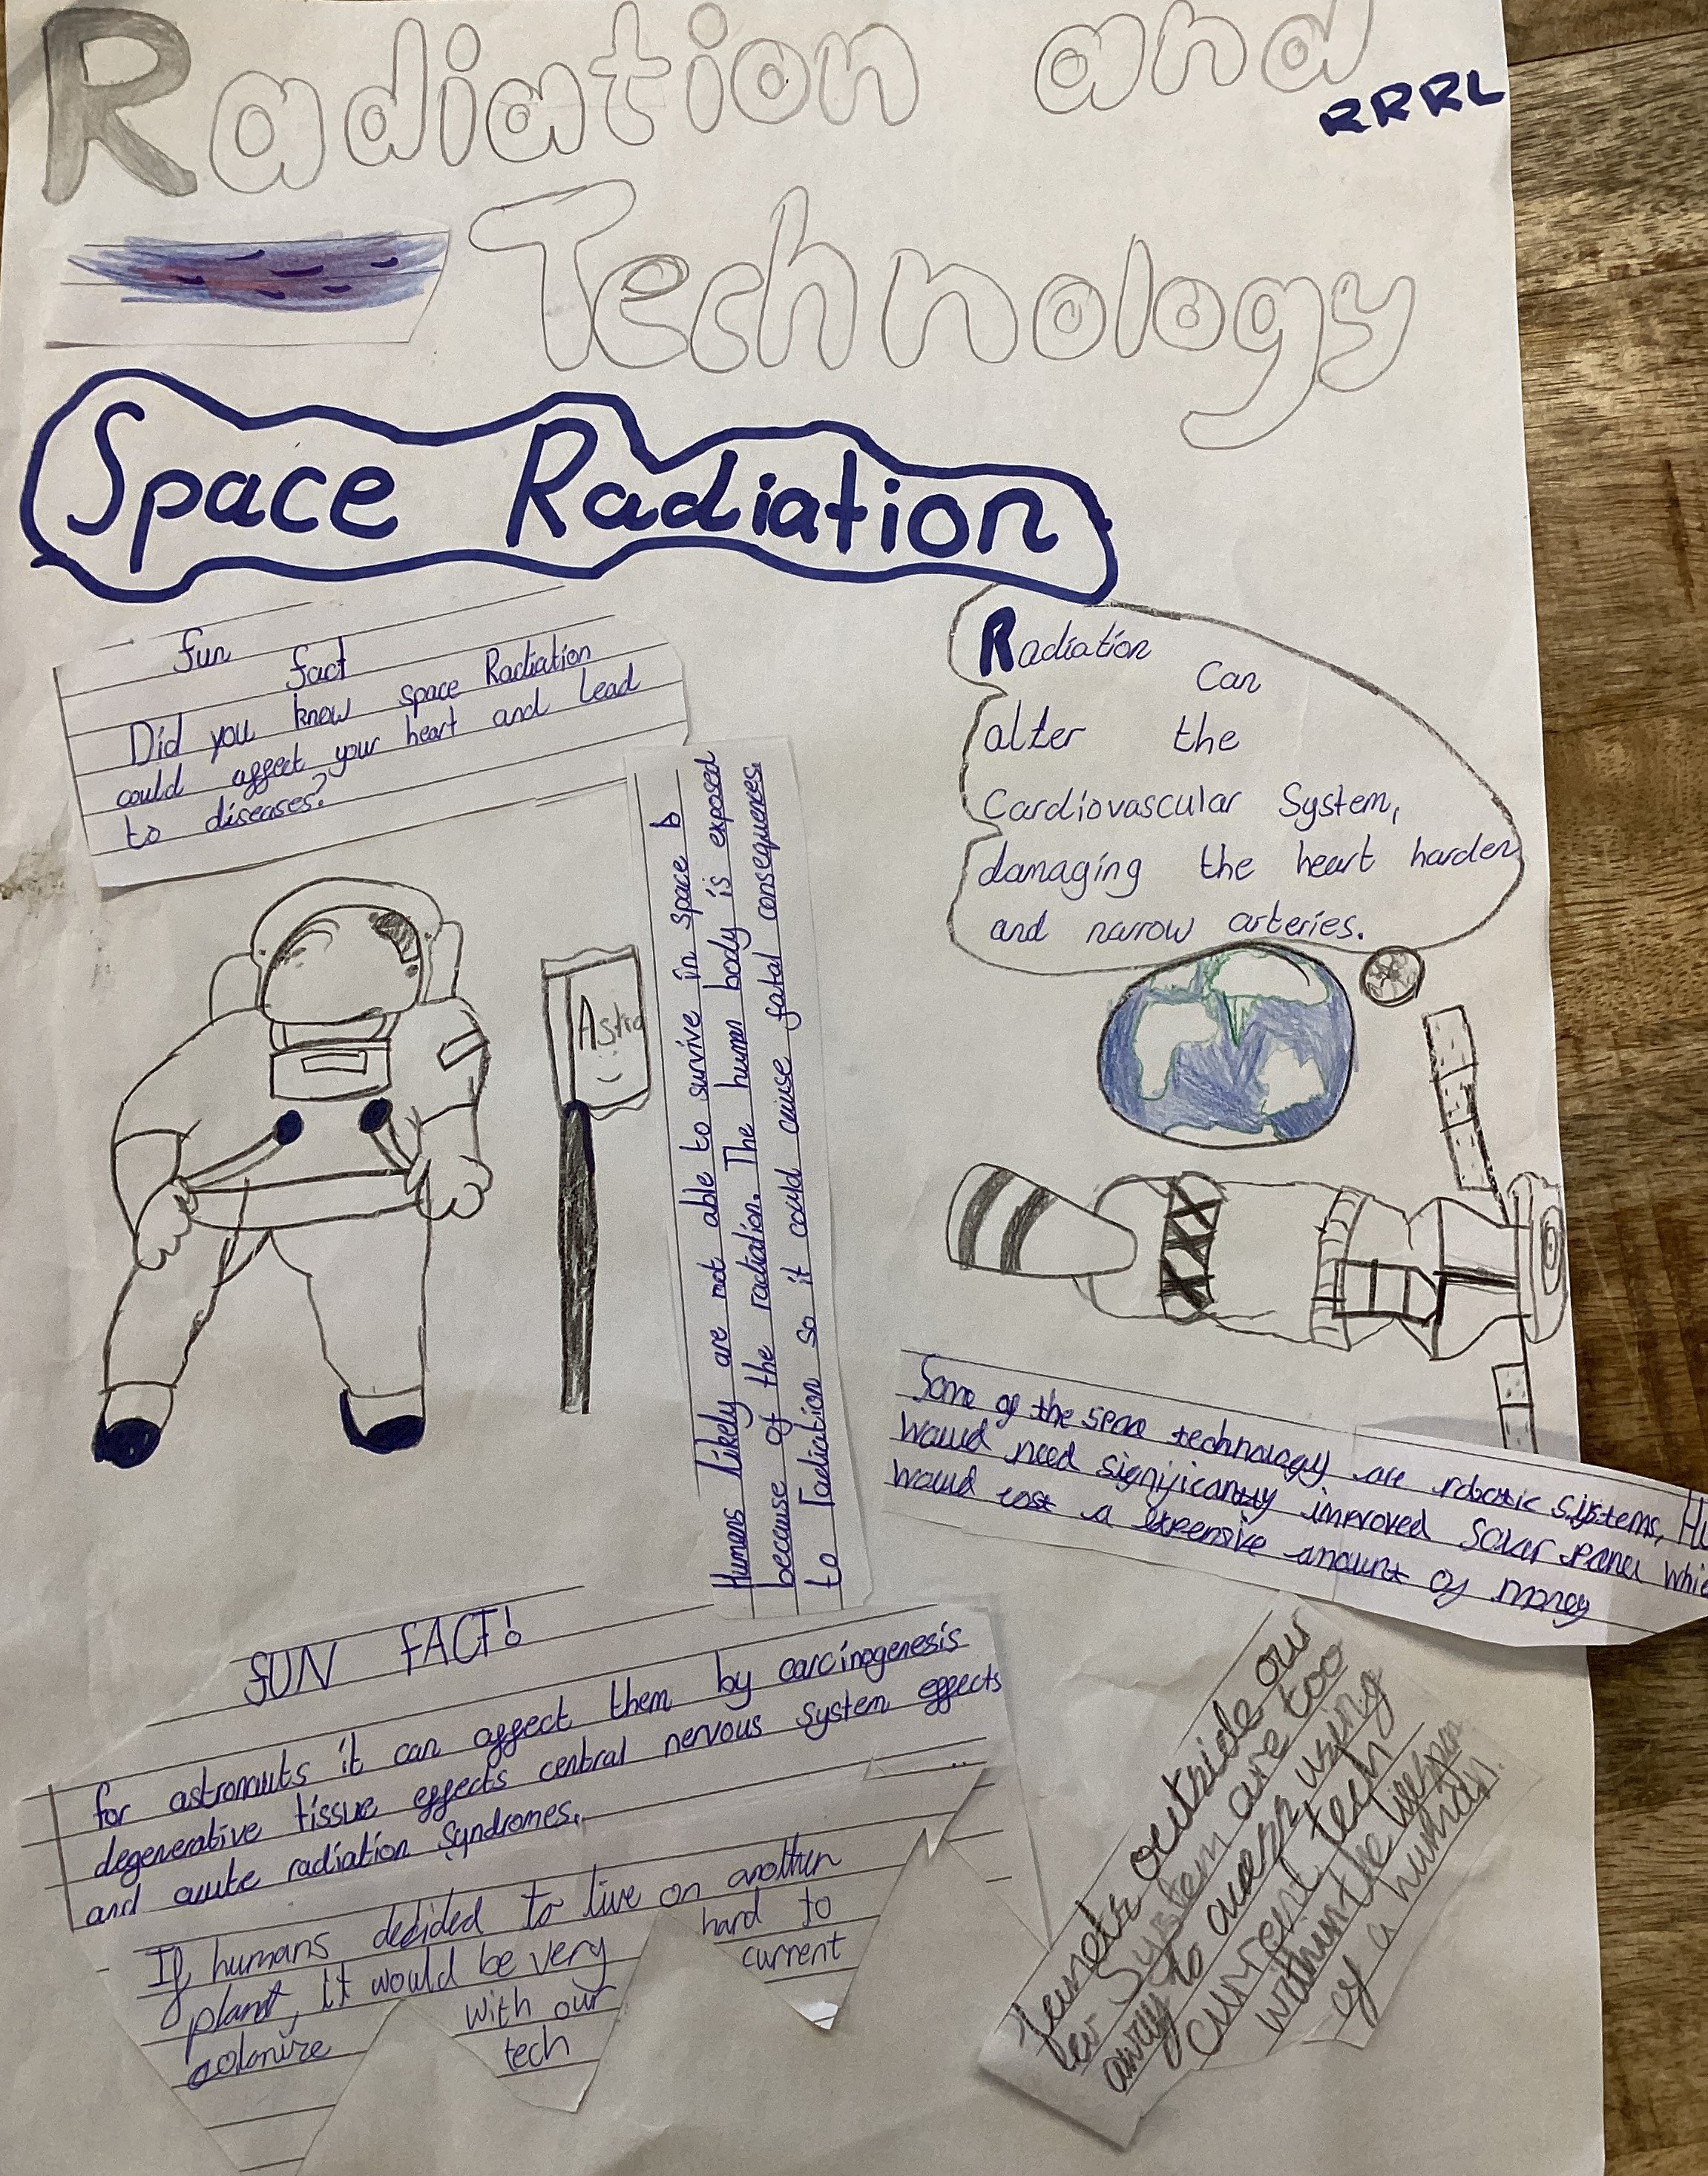 Radiation and
RRRL
Technology
Space Radiation
fun fact
Did you know space Radiation
could affect your heart and lead
to diseases?
Radiation
Can
alter the
Cardiovascular System,
damaging the heart harden
and narrow arteries.
Astro
Humans likely are not able to survive in space b
because of the radiation. The human body is exposed
to radiation so it could cause fatal consequences.
Some of the space technology are robotic systems,
would need significantly improved Solar panel
would cost a expensive amount of money
FUN FACT!
for astronauts it can affect them by carcinogenesis
degenerative tissue effects central nervous system effects
and acute radiation syndromes.
If humans decided to live on another
planet, it would be very hard to
colonize with our current
tech
outside our
System are too
away to using
current tech
within the
of a human.